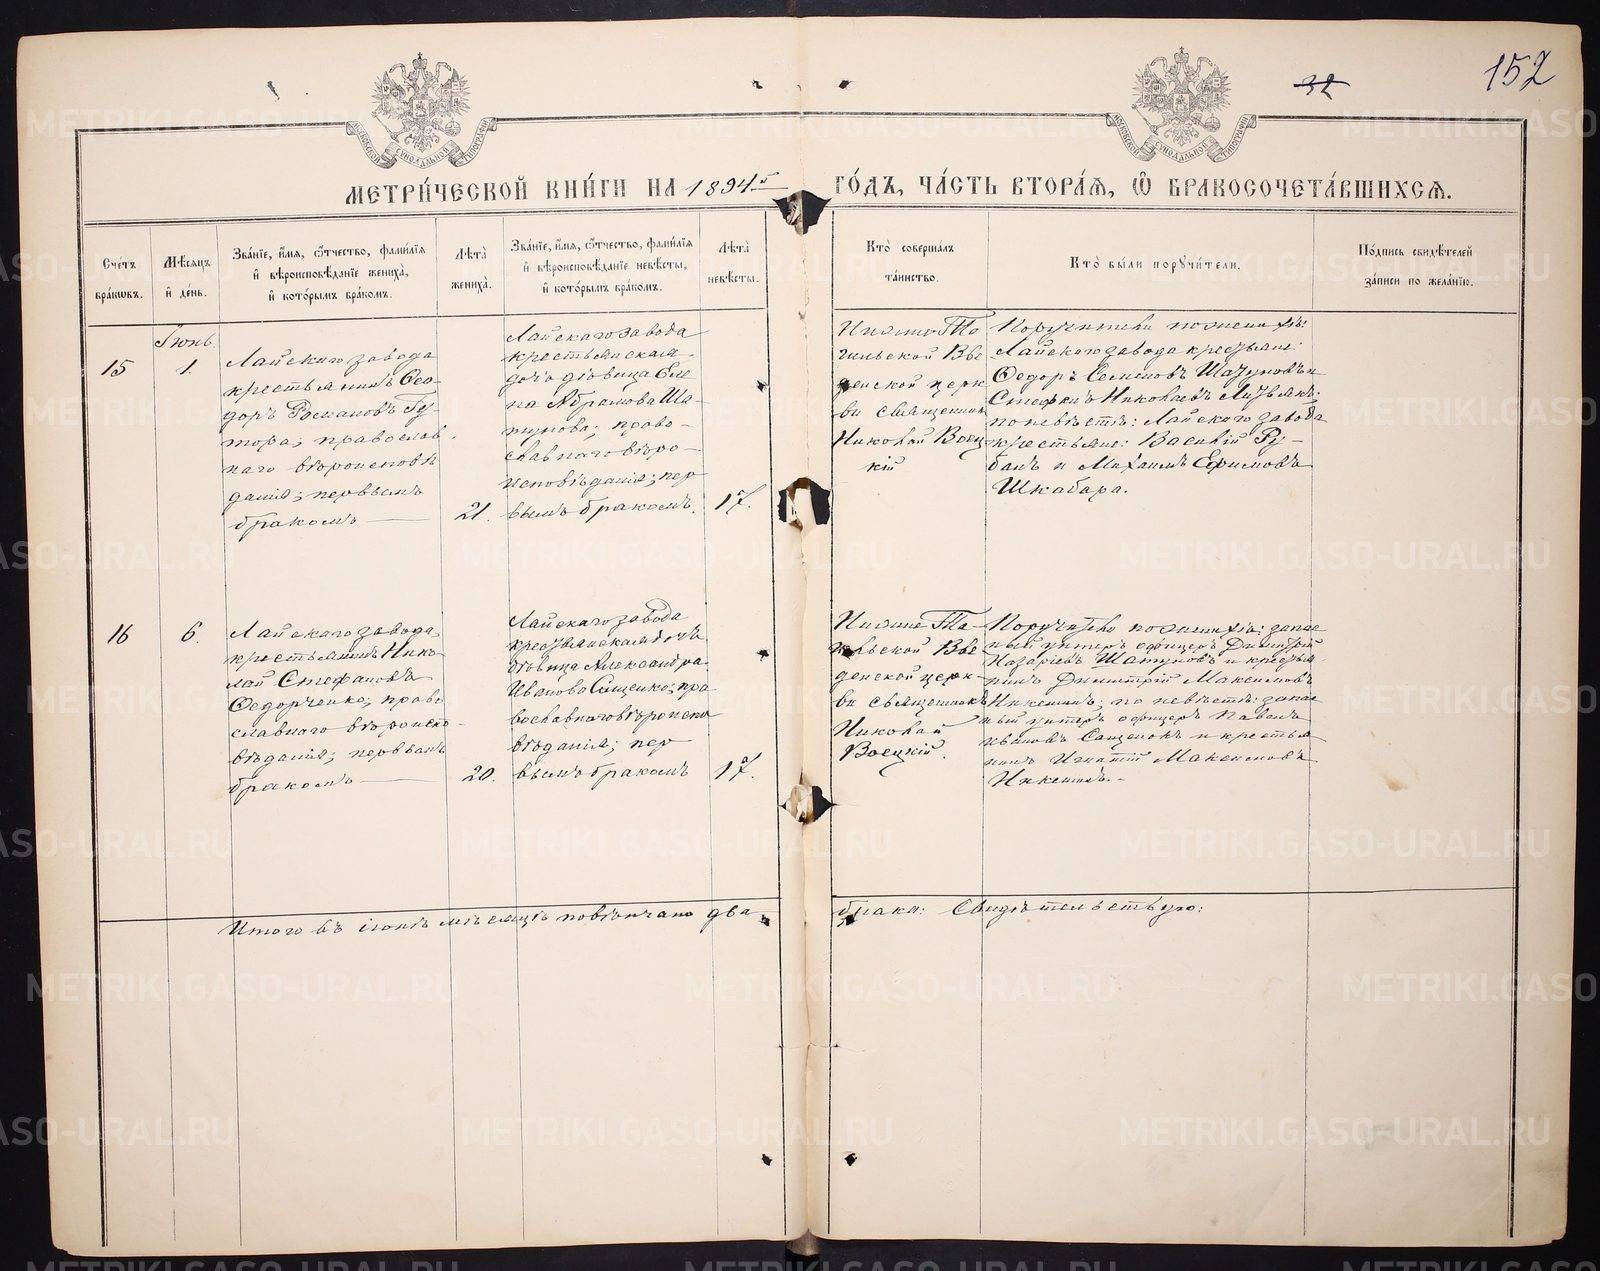 152
32
МЕТРИ́ЧЕСКОЙ КНИ́ГИ НА 1894 5 ГО́ДЪ, ЧА́СТЬ ВТОРА́Ѧ, Ѡ҆ БРАКОСОЧЕТА́ВШИХСѦ.
Сче́тъ
бра́кѡвъ.
Мѣ́сѧцъ
и҆ де́нь.
Зва́нїе, и҆́мѧ, ѻ҆́тчество, фами́лїѧ
и҆ вѣроисповѣ́данїе жениха̀,
и҆ кото́рымъ бра́комъ.
Лѣта̀
жениха̀.
Зва́нїе, и҆́мѧ, ѻ҆́тчество, фами́лїѧ
и҆ вѣроисповѣ́данїе невѣ́сты,
и҆ кото́рымъ бра́комъ.
Лѣта̀
невѣ́сты.
Кто̀ соверша́лъ
та́инство.
Кто̀ бы́ли порꙋчи́тели.
По́дпись свидѣ́телей
за́писи по жела́нїю.
Іюнь
15
1.
Лайскаго завода
крестьянинъ Ѳео-
доръ Романовъ Гу-
тора; православ
наго вѣроисповѣ
данія; первымъ
бракомъ
21.
Лайскаго завода
крестьянская
дочь дѣвица Еле
на Абрамова Ша-
пунова; право-
славнаго вѣро-
исповѣданія; пер
вымъ бракомъ.
17.
Нижне Та
гильской Вве
денской церк
ви священникъ
Николай Воец
кій
Поручители по женихѣ:
Лайскаго завода крестьяне:
Ѳедоръ Семеновъ и
Стефанъ Николаевъ
по невѣстѣ: Лайскаго завода
крестьяне: Василій Ру-
банъ и Михаилъ Ефимовъ
Шкабара.
16
6.
Лайскаго завода,
крестьянинъ Нико
лай Стефановъ
Ѳедорченко; право
славнаго вѣроиспо
вѣданія; первымъ
бракомъ
20.
Лайскаго завода
крестьянская дочь
дѣвица Александра
Иванова Сащенко; пра
вославнаго вѣроиспо
вѣданія; пер
вымъ бракомъ
17.
Нижне Та-
гильской Вве
денской церк-
ви священникъ
Николай
Воецкій.
Поручители по женихѣ: запас
ный унтеръ офицеръ Димитрій
Назаріевъ Шапуновъ и крестья
нинъ Димитрій Максимовъ
Никешинъ; по невѣстѣ: запас
ный унтеръ офицеръ Павелъ
Ивановъ Сащенокъ и крестья
нинъ Игнатій Максимовъ
Никешинъ.-
Итого въ іюнѣ мѣсяцѣ повѣнчано два брака: Свидѣтельствую:
METRIKI.GASO-URAL.RU